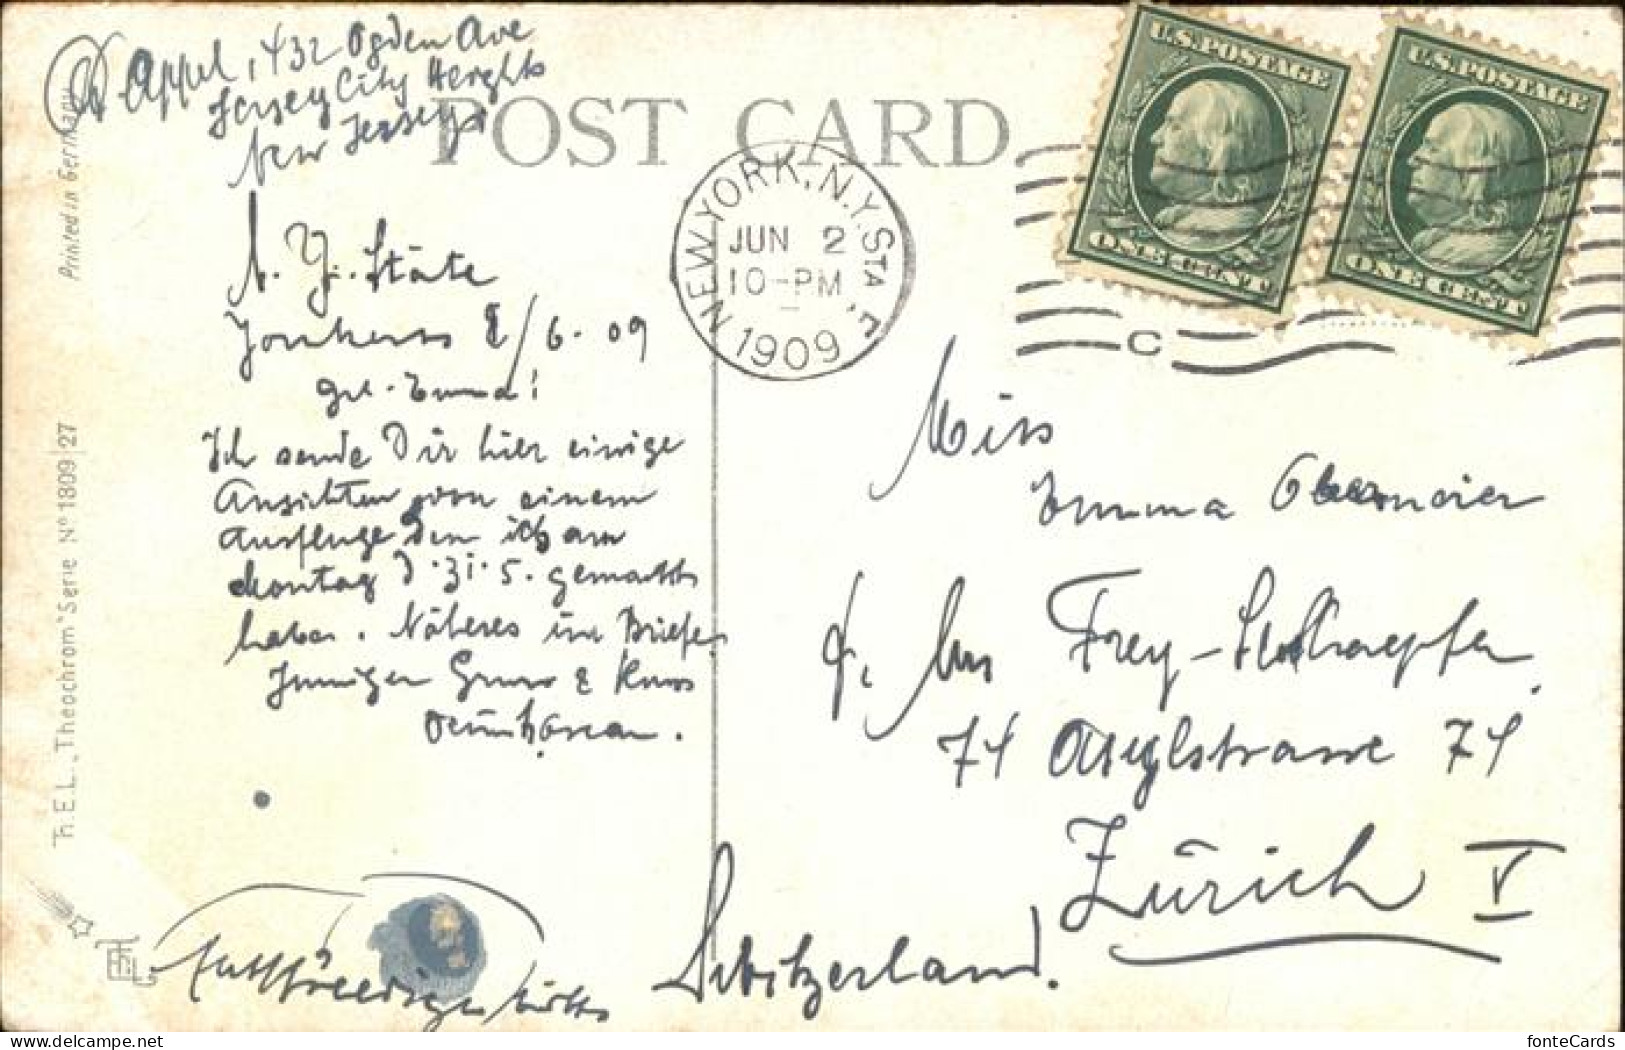 Appel, 432 Ogden Ave
Jersey City Heights
New Jersey
POST CARD
U.S. POSTAGE
ONE CENT
U.S. POSTAGE
ONE CENT
NEW YORK, N.Y. STA. F
JUN 2
10-PM
1909
C
N. Y. State
Yonkers /6.09
Emma!
Ich sende Dir hier einige
Ansichten von einem
Ausfluge den ich am
Montag d. 31.5. gemacht
habe. Näheres im Briefe.
Gruss & Kuss
Miss
Emma Obermeier
Frey-
74 Asylstrasse 74
Zürich V
Switzerland.
Printed in Germany
Th. E. L. „Theochrom" Serie No 1809|27
fonteCards